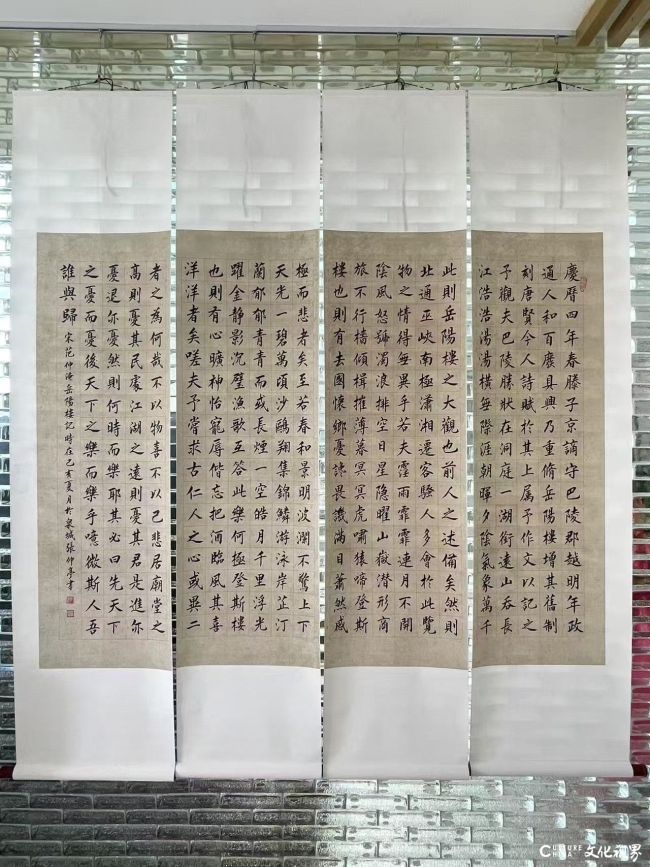 慶曆四年春滕子京謫守巴陵郡越明年政
通人和百廢具興乃重脩岳陽樓增其舊制
刻唐賢今人詩賦於其上屬予作文以記之
予觀夫巴陵勝狀在洞庭一湖銜遠山吞長
江浩浩湯湯橫無際涯朝暉夕陰氣象萬千
此則岳陽樓之大觀也前人之述備矣然則
北通巫峽南極瀟湘遷客騷人多會於此覽
物之情得無異乎若夫霪雨霏霏連月不開
陰風怒號濁浪排空日星隱曜山嶽潛形商
旅不行檣傾楫摧薄暮冥冥虎嘯猿啼登斯
樓也則有去國懷鄉憂讒畏譏滿目蕭然感
極而悲者矣至若春和景明波瀾不驚上下
天光一碧萬頃沙鷗翔集錦鱗游泳岸芷汀
蘭郁郁青青而或長煙一空皓月千里浮光
躍金静影沉璧漁歌互答此樂何極登斯樓
也則有心曠神怡寵辱偕忘把酒臨風其喜
洋洋者矣嗟夫予嘗求古仁人之心或異二
者之為何哉不以物喜不以己悲居廟堂之
高則憂其民處江湖之遠則憂其君是進亦
憂退亦憂然則何時而樂耶其必曰先天下
之憂而憂後天下之樂而樂乎噫微斯人吾
誰與歸 宋范仲淹岳陽樓記時在己亥夏月於泉城張仲亭書
文化视界